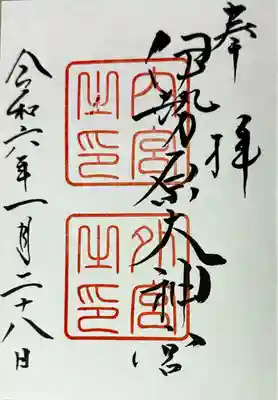 奉拝
伊勢原大神宮
内宮之印
外宮之印
令和六年一月二十八日